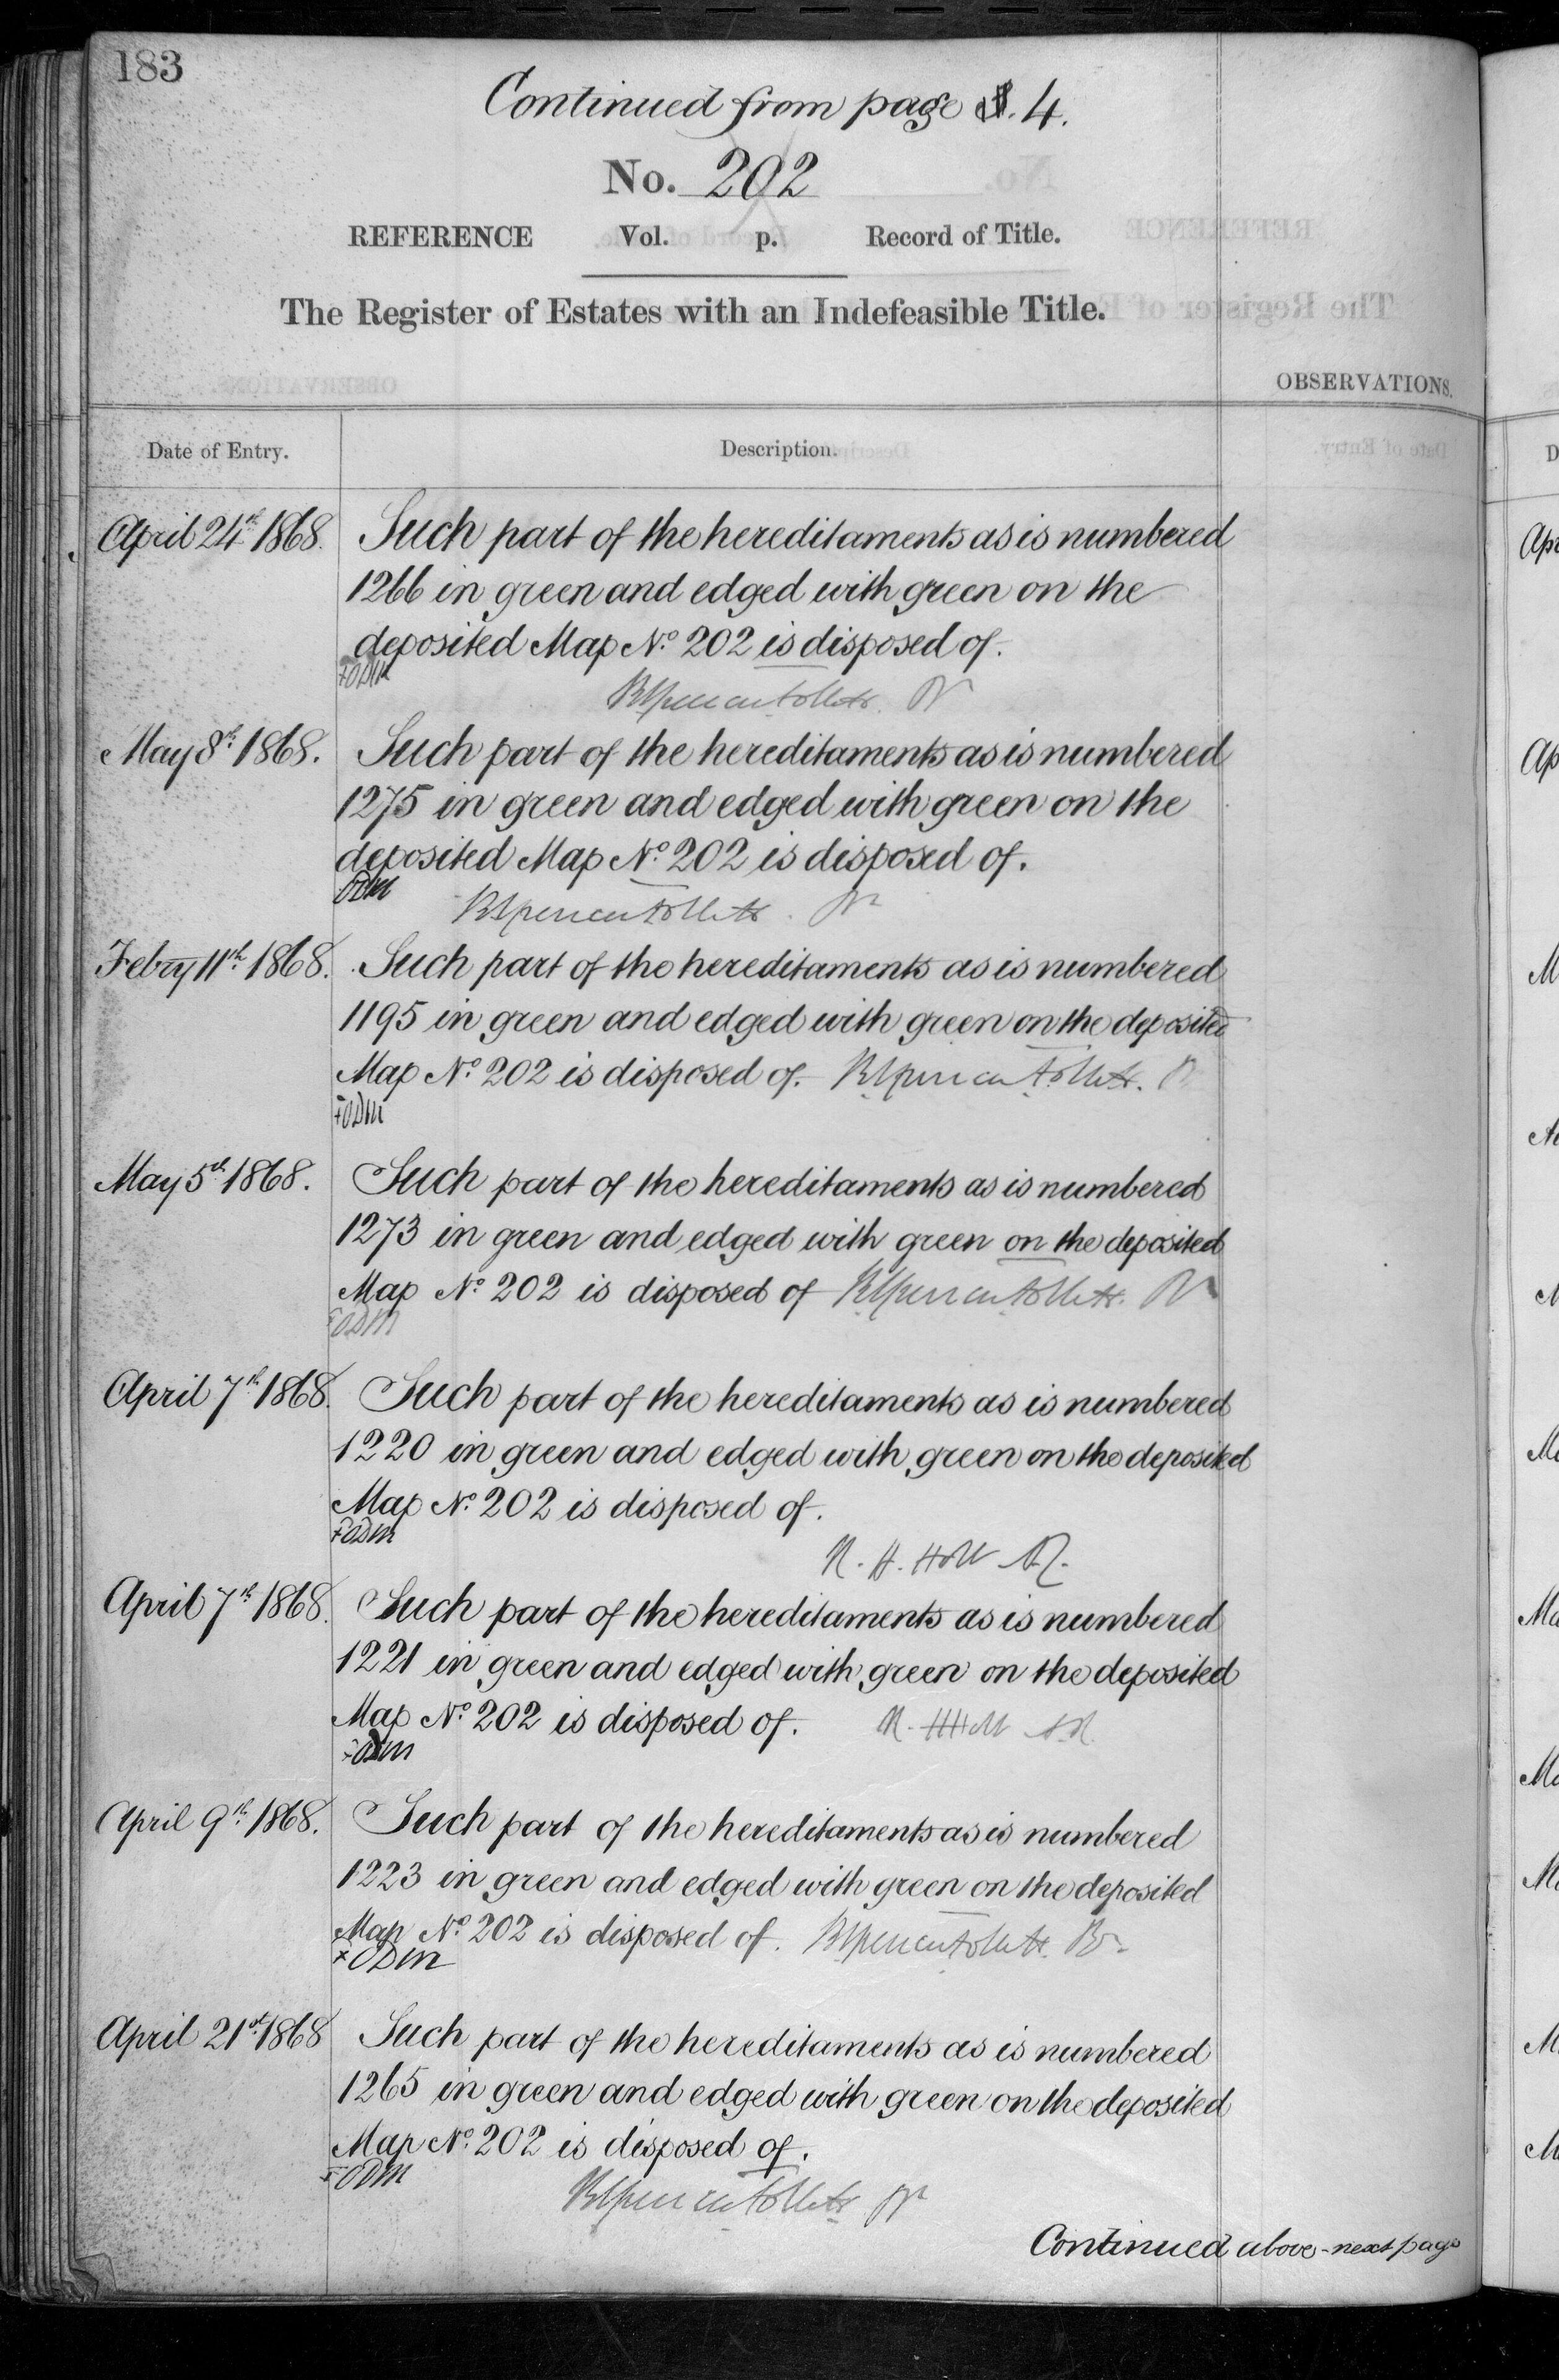 183
Continued from page 4.
No. 202
REFERENCE Vol. p. Record of Title.
The Register of Estates with an Indefeasible Title.
OBSERVATIONS.
Date of Entry. Description.
April 24th 1868. Such part of the hereditaments as is numbered
1266 in green and edged with green on the
deposited Map No. 202 is disposed of.
May 8th 1868. Such part of the hereditaments as is numbered
1275 in green and edged with green on the
deposited Map No. 202 is disposed of.
Febry 11th 1868. Such part of the hereditaments as is numbered
1195 in green and edged with green on the deposited
Map No. 202 is disposed of.
May 5th 1868. Such part of the hereditaments as is numbered
1273 in green and edged with green on the deposited
Map No. 202 is disposed of
April 7th 1868. Such part of the hereditaments as is numbered
1220 in green and edged with green on the deposited
Map No. 202 is disposed of.
April 7th 1868. Such part of the hereditaments as is numbered
1221 in green and edged with green on the deposited
Map No. 202 is disposed of.
April 9th 1868. Such part of the hereditaments as is numbered
1223 in green and edged with green on the deposited
Map No. 202 is disposed of.
April 21st 1868 Such part of the hereditaments as is numbered
1265 in green and edged with green on the deposited
Map No. 202 is disposed of.
Continued above next page